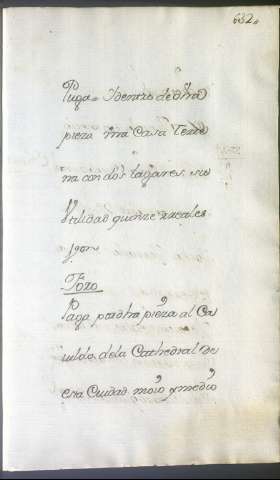 632.
Puga= Dentro de dha
pieza una Casa Terre
na con dos lagares, su
Utilidad quinze reales
Foro
Paga por dha pieza al Ca
uildo, dela Cathedral de
esta Ciudad, moio y medio